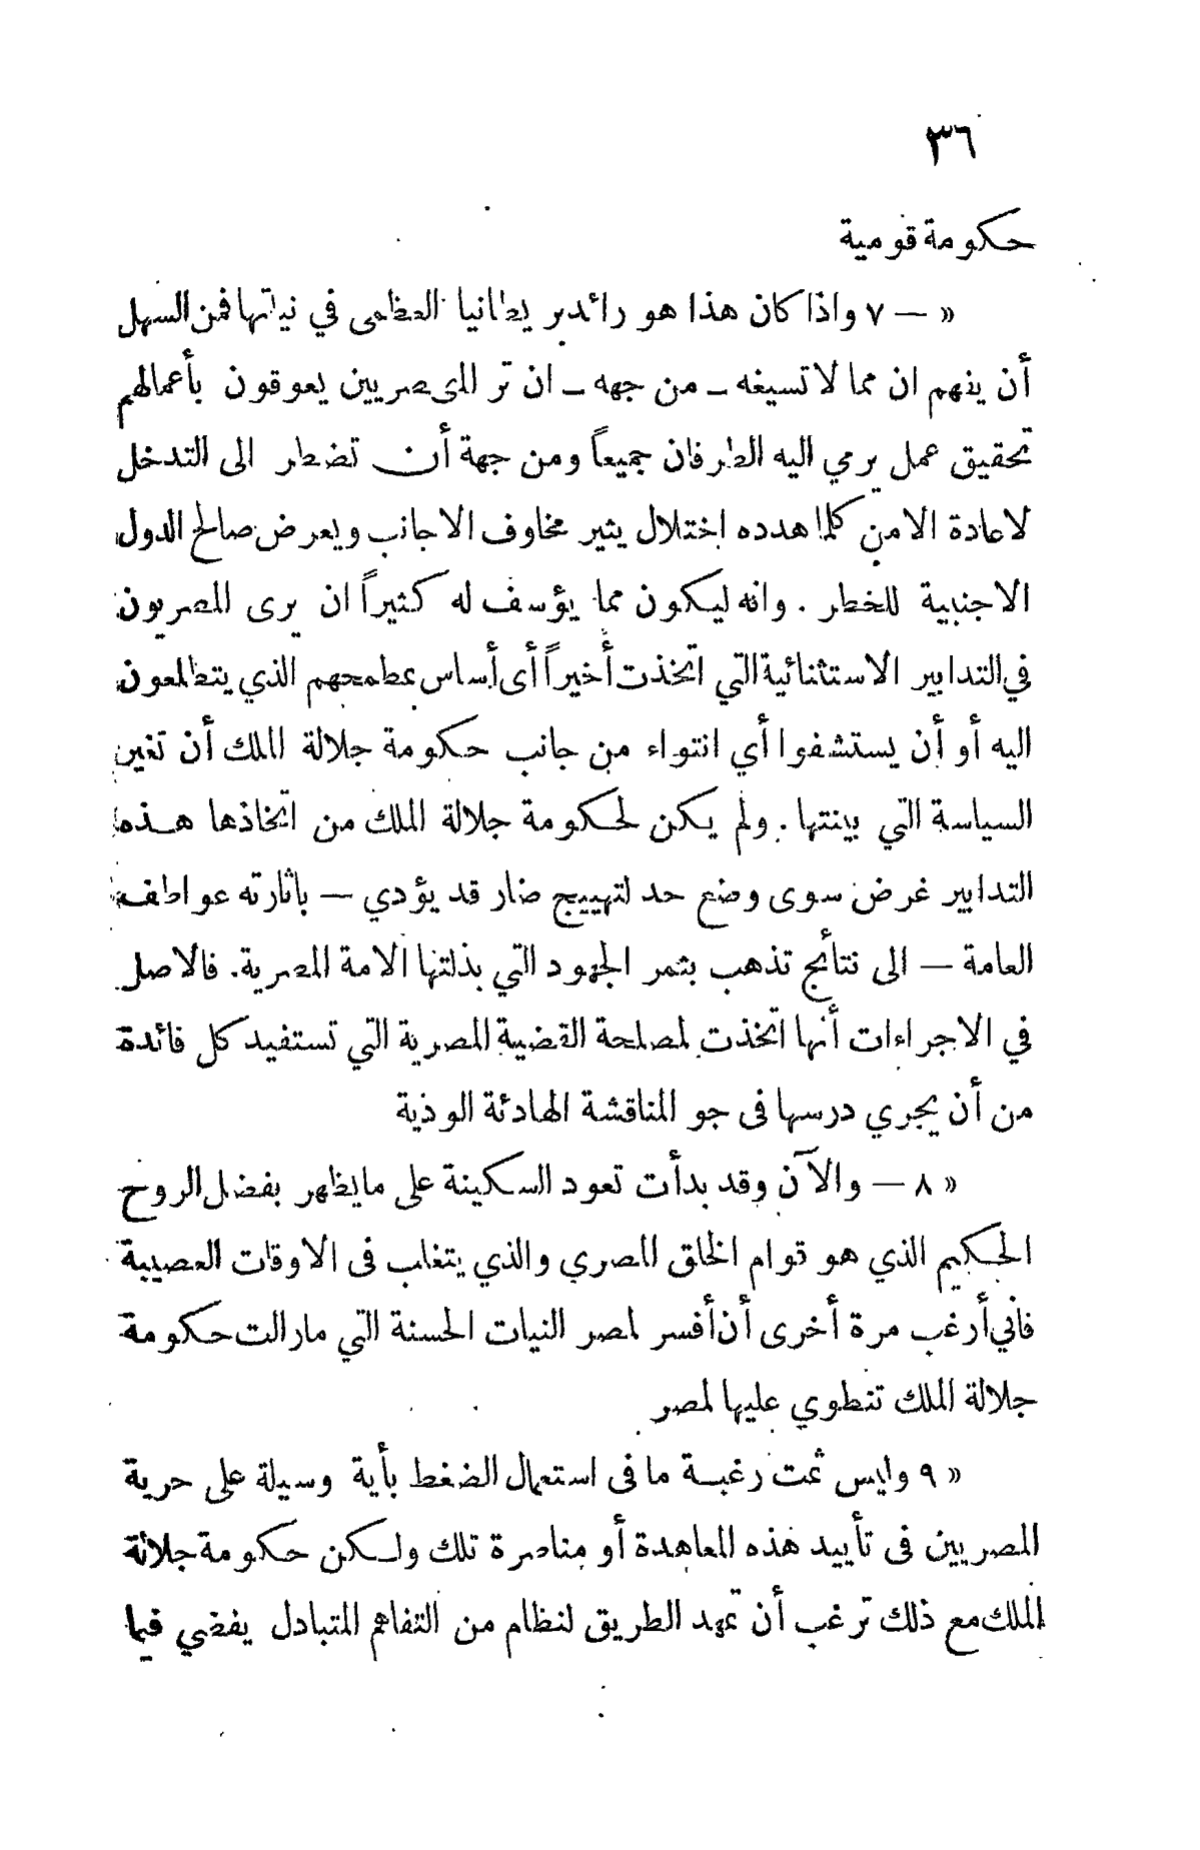 ٣٦
حكومة قومية
« — ٧ واذا كان هذا هو رائد بريطانيا العظمى في نياتها فمن السهل
أن يفهم ان مما لا تسيغه — من جهه — ان ترى المصريين يعوقون بأعمالهم
تحقيق عمل يرمي اليه الطرفان جميعاً ومن جهة أن تضطر الى التدخل
لاعادة الامن كلما هدده اختلال يثير مخاوف الاجانب ويعرض صالح الدول
الاجنبية للخطر . وانه ليكون مما يؤسف له كثيراً ان يرى المصريون
في التدابير الاستثنائية التي اتخذت أخيراً أى أساس بمطمحهم الذي يتطلعون
اليه أو أن يستشفوا أي انتواء من جانب حكومة جلالة الملك أن تغير
السياسة التي بينتها . ولم يكن لحكومة جلالة الملك من اتخاذها هذه
التدابير غرض سوى وضع حد لتهييج ضار قد يؤدي — باثارته عواطف
العامة — الى نتائج تذهب بثمر الجهود التي بذلتها الامة المصرية. فالاصل
في الاجراءات أنها اتخذت لمصلحة القضية المصرية التي تستفيد كل فائدة
من أن يجري درسها فى جو المناقشة الهادئة الودية
« ٨ — والآن وقد بدأت تعود السكينة على ما يظهر بفضل الروح
الحكيم الذي هو قوام الخلق المصري والذي يتغلب فى الاوقات العصيبة
فاني أرغب مرة أخرى أن أفسر لمصر النيات الحسنة التي مازالت حكومة
جلالة الملك تنطوي عليها لمصر
« ٩ وليس ثمت رغبة ما فى استعمال الضغط بأية وسيلة على حرية
المصريين فى تأييد هذه المعاهدة أو مناصرة تلك ولكن حكومة جلالة
الملك مع ذلك ترغب أن تمهد الطريق لنظام من التفاهم المتبادل يفضي فيما